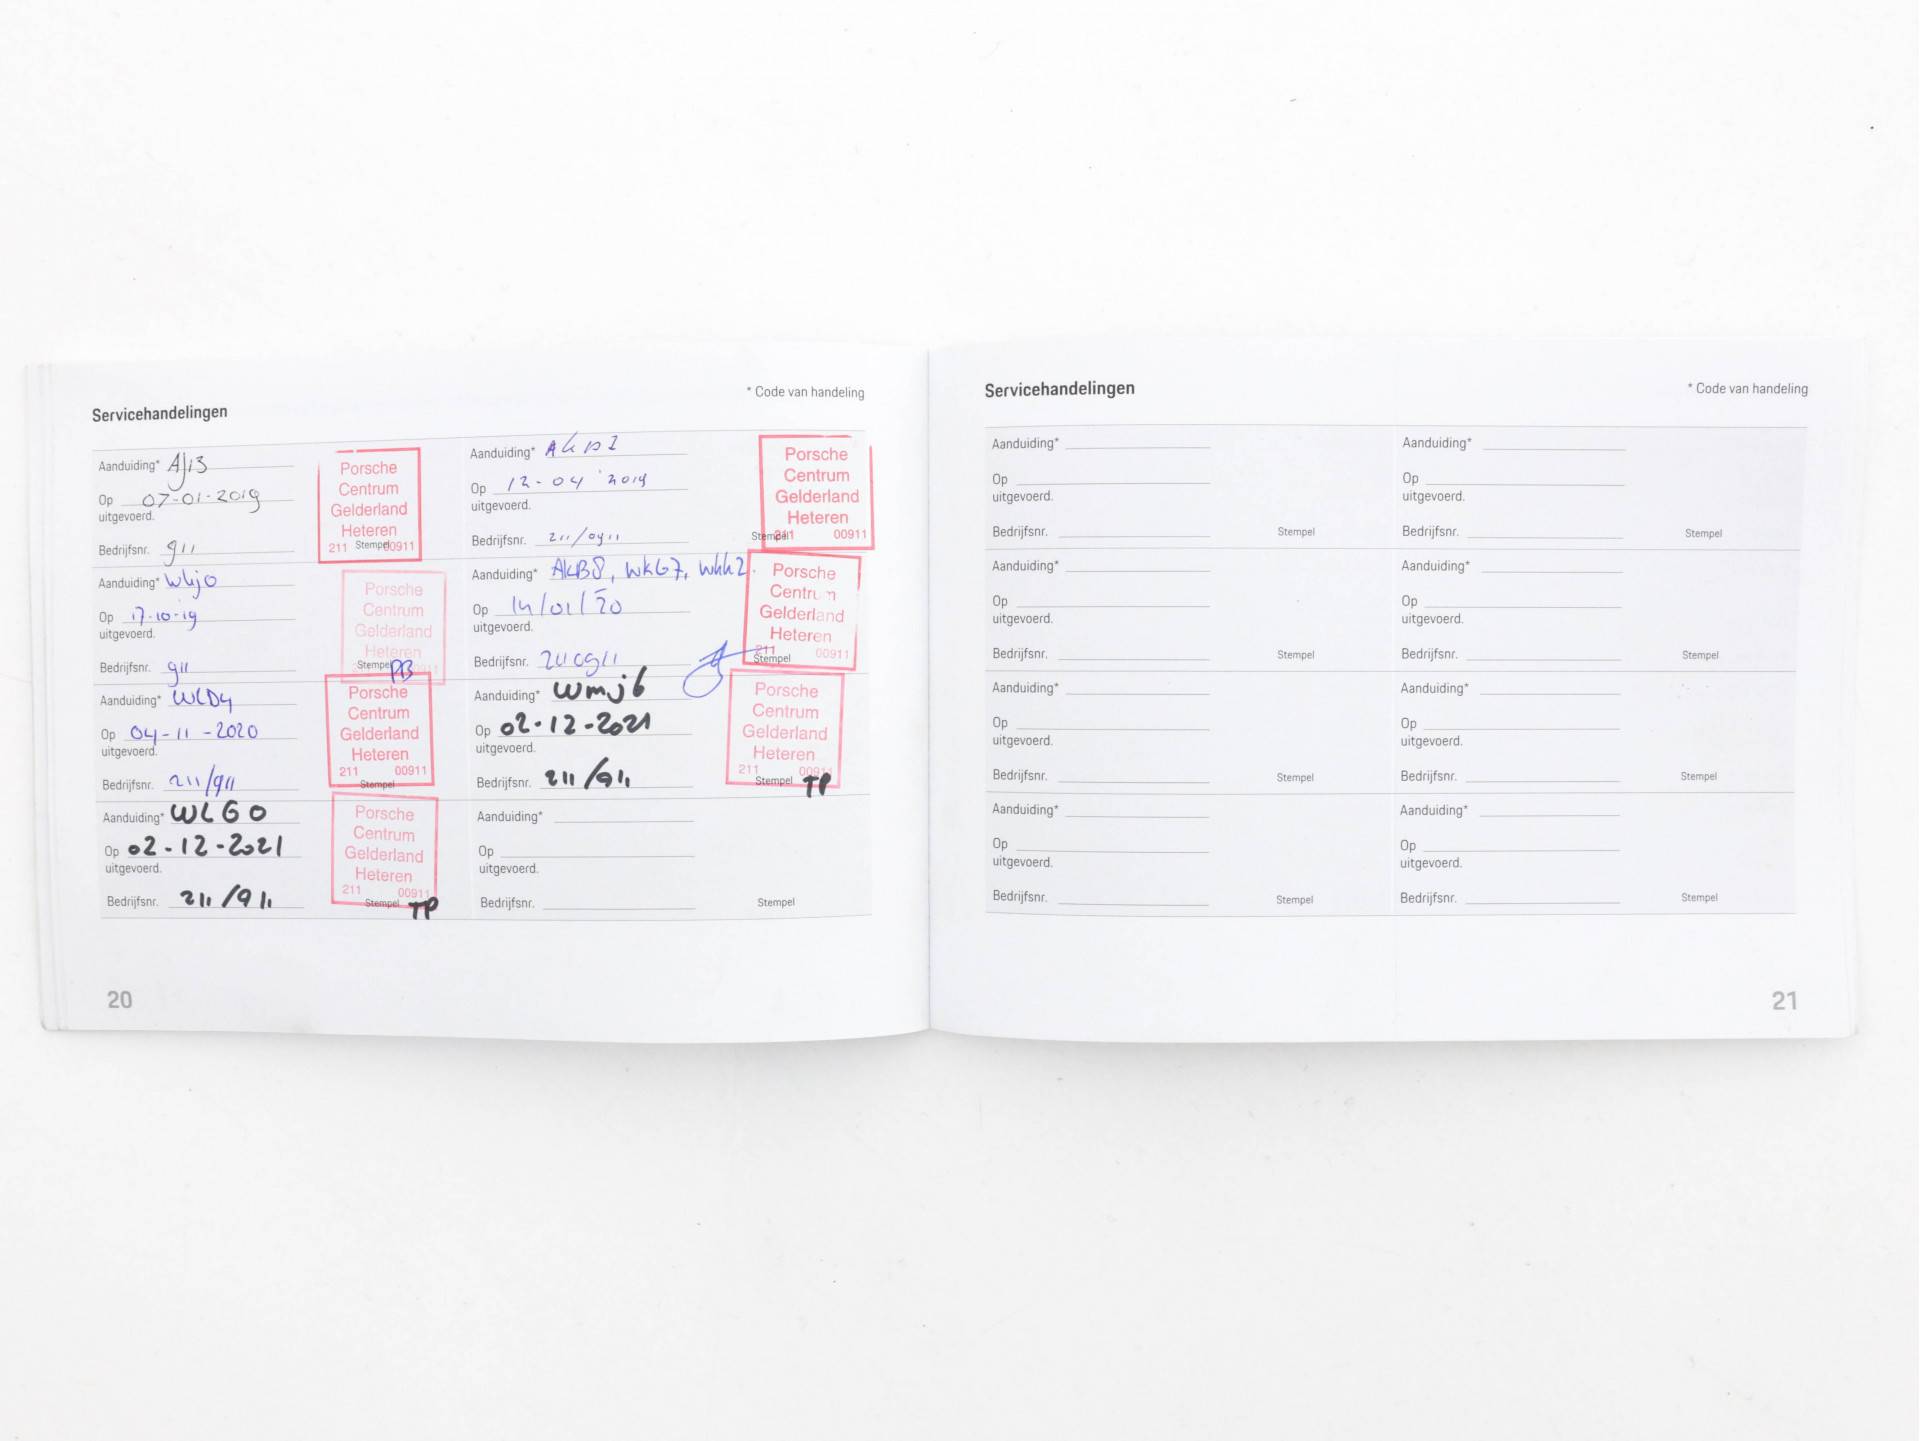 Servicehandelingen
* Code van handeling
Aanduiding* AJ13
Op 07-01-2019
uitgevoerd.
Bedrijfsnr. 911
Stempel
Porsche
Centrum
Gelderland
Heteren
211 00911
Aanduiding*
Op 12-04 2019
uitgevoerd.
Bedrijfsnr. 211/0911
Stempel
Porsche
Centrum
Gelderland
Heteren
211 00911
Aanduiding* WKJ0
Op 17-10-19
uitgevoerd.
Bedrijfsnr. 911
Stempel PB
Porsche
Centrum
Gelderland
Heteren
211 00911
Aanduiding* AKB8, WKG7, WKH2.
Op 14/01/20
uitgevoerd.
Bedrijfsnr.
Stempel
Porsche
Centrum
Gelderland
Heteren
211 00911
Aanduiding* WLD4
Op 04-11-2020
uitgevoerd.
Bedrijfsnr. 211/911
Stempel
Porsche
Centrum
Gelderland
Heteren
211 00911
Aanduiding* WMJ6
Op 02-12-2021
uitgevoerd.
Bedrijfsnr. 211/911
Stempel TP
Porsche
Centrum
Gelderland
Heteren
211 00911
Aanduiding* WLG0
Op 02-12-2021
uitgevoerd.
Bedrijfsnr. 211/911
Stempel TP
Porsche
Centrum
Gelderland
Heteren
211 00911
Aanduiding*
Op
uitgevoerd.
Bedrijfsnr.
Stempel
20
Servicehandelingen
* Code van handeling
Aanduiding*
Op
uitgevoerd.
Bedrijfsnr.
Stempel
Aanduiding*
Op
uitgevoerd.
Bedrijfsnr.
Stempel
Aanduiding*
Op
uitgevoerd.
Bedrijfsnr.
Stempel
Aanduiding*
Op
uitgevoerd.
Bedrijfsnr.
Stempel
Aanduiding*
Op
uitgevoerd.
Bedrijfsnr.
Stempel
Aanduiding*
Op
uitgevoerd.
Bedrijfsnr.
Stempel
Aanduiding*
Op
uitgevoerd.
Bedrijfsnr.
Stempel
Aanduiding*
Op
uitgevoerd.
Bedrijfsnr.
Stempel
21